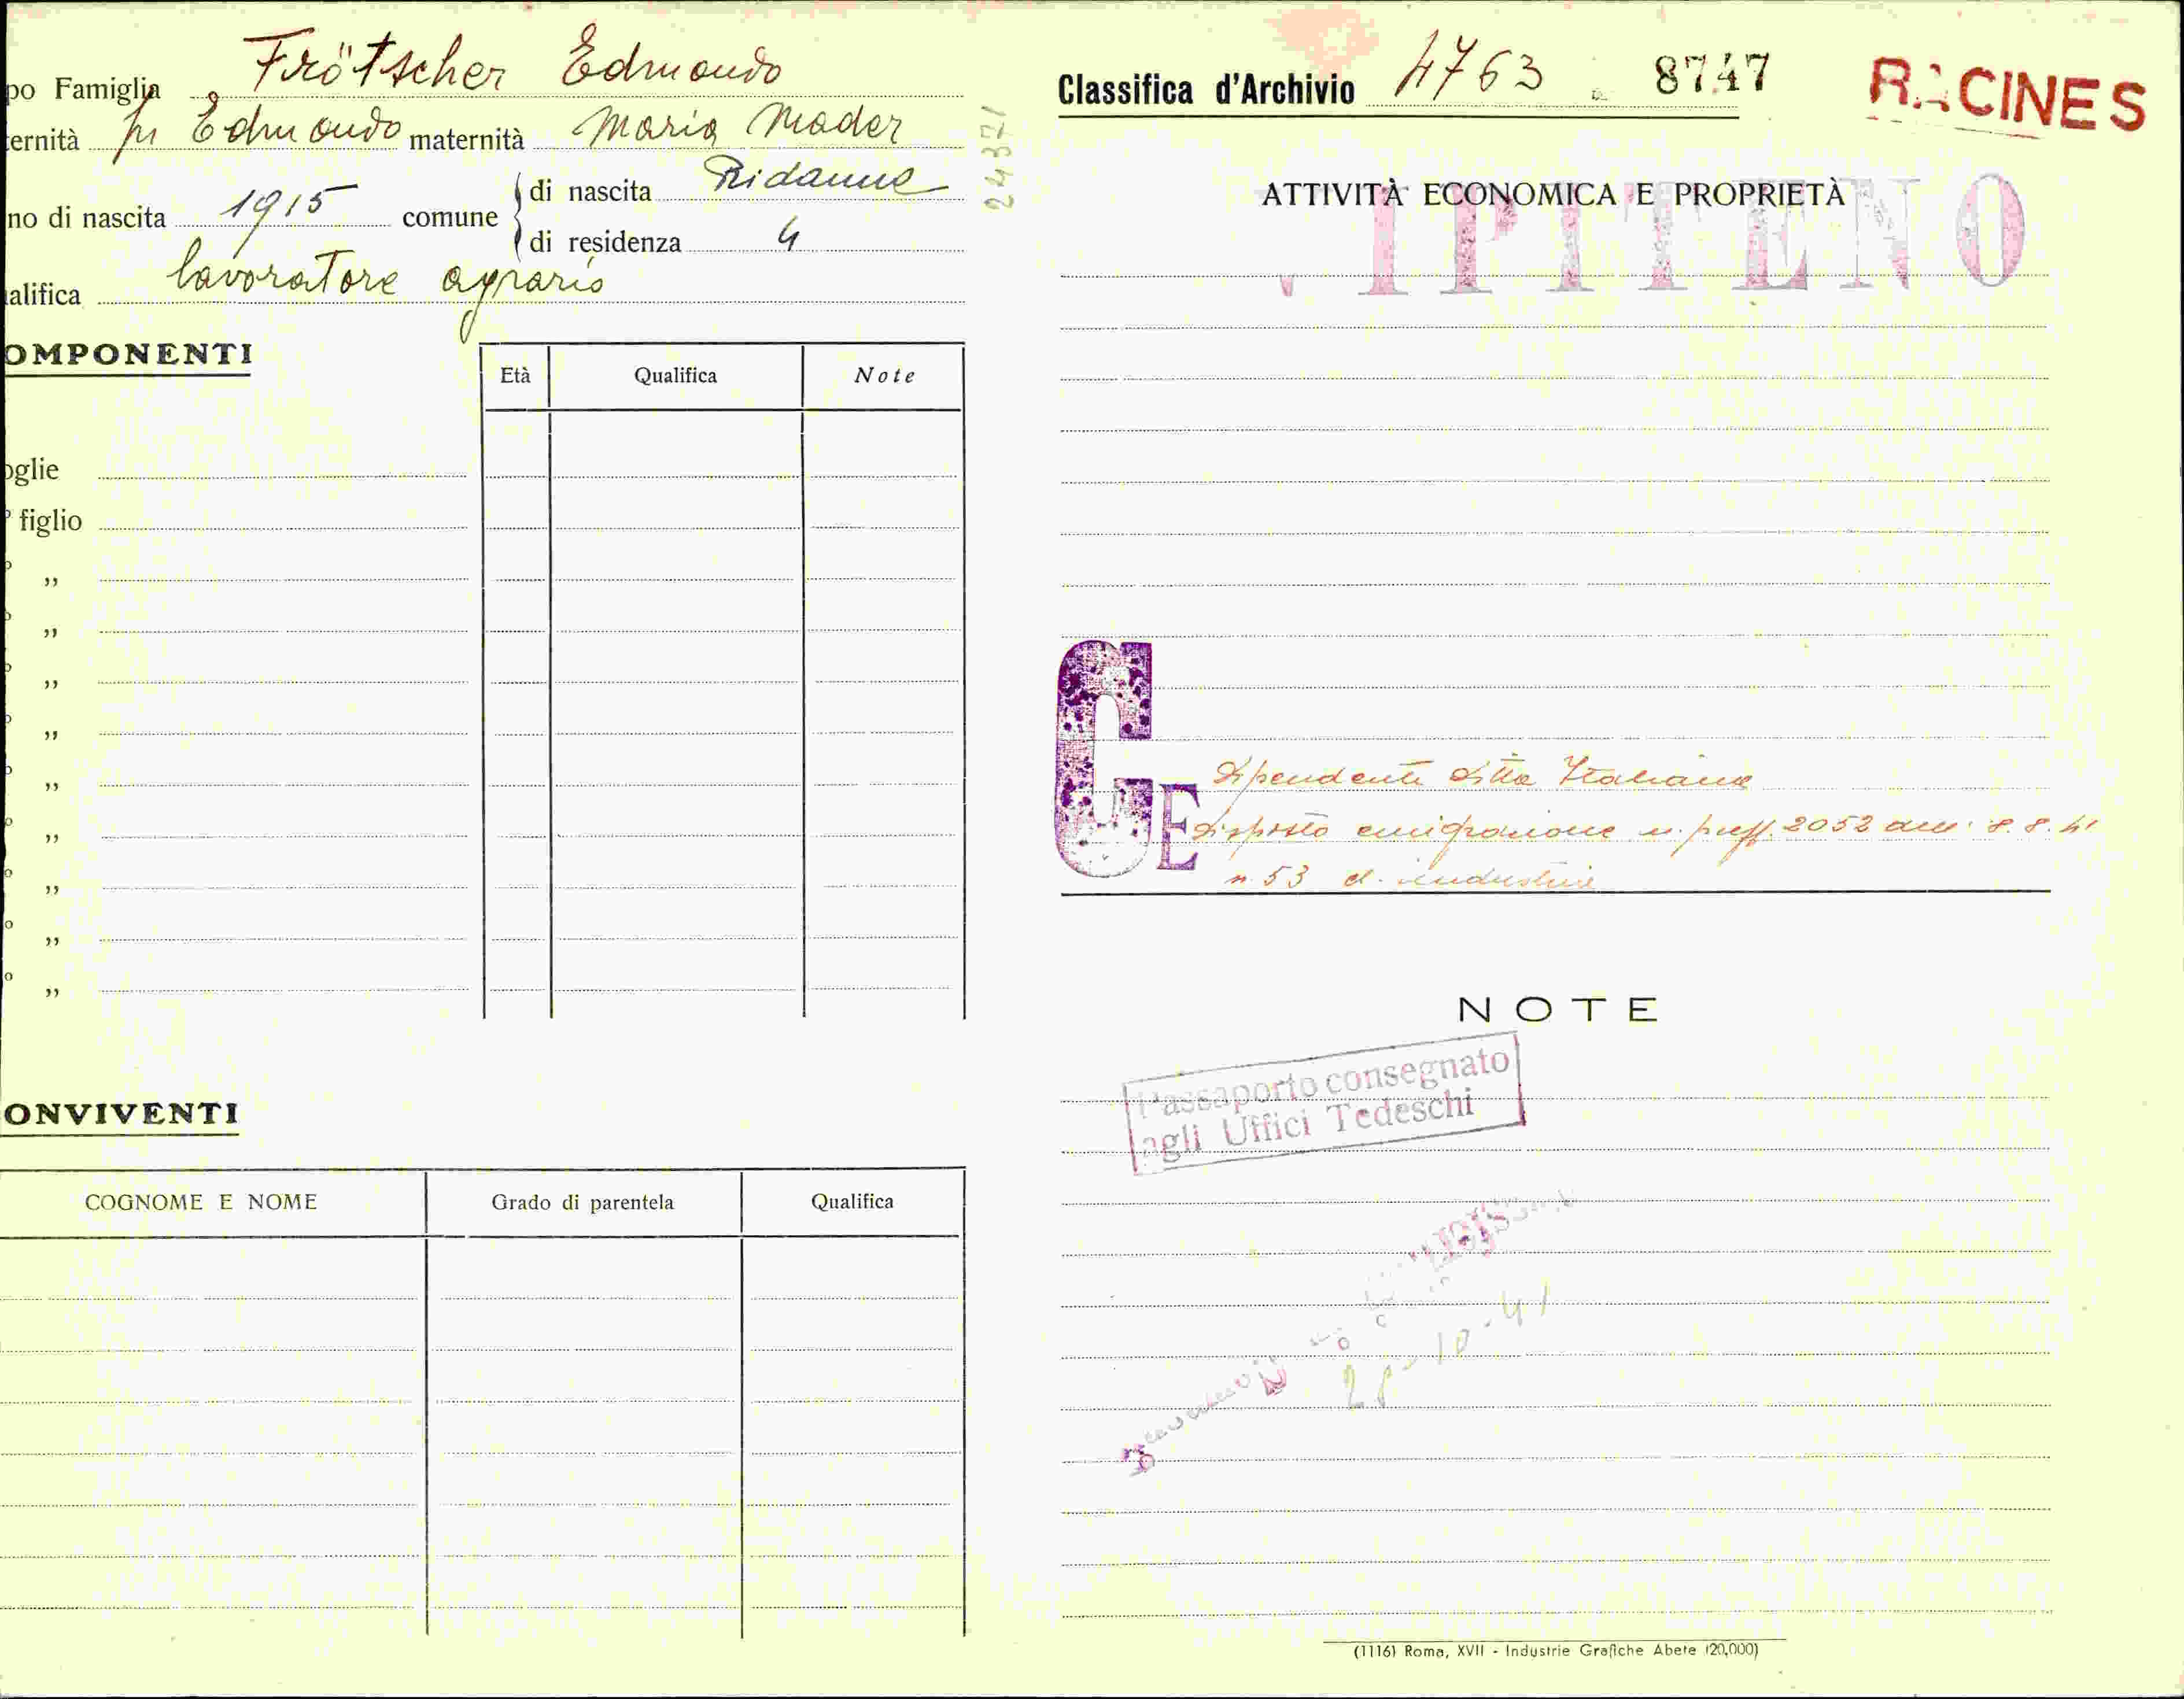 po Famiglia Frötscher Edmondo
ernità fu Edmondo maternità Maria Mader
no di nascita 1915 comune di nascita Ridanna
di residenza 4
alifica lavoratore agrario
OMPONENTI
Età Qualifica Note
oglie
° figlio
° ,,
° ,,
° ,,
° ,,
° ,,
° ,,
° ,,
° ,,
° ,,
ONVIVENTI
COGNOME E NOME Grado di parentela Qualifica
244321
Classifica d'Archivio 4763 8747
RACINES
ATTIVITÀ ECONOMICA E PROPRIETÀ
VIPITENO
C E
Dipendente ditta Italiana
disposto emigrazione n. pref. 2052 del 8.8.41
n. 53 d. industria
NOTE
Passaporto consegnato
agli Uffici Tedeschi
28-10-41
(1116) Roma, XVII - Industrie Grafiche Abete (20,000)